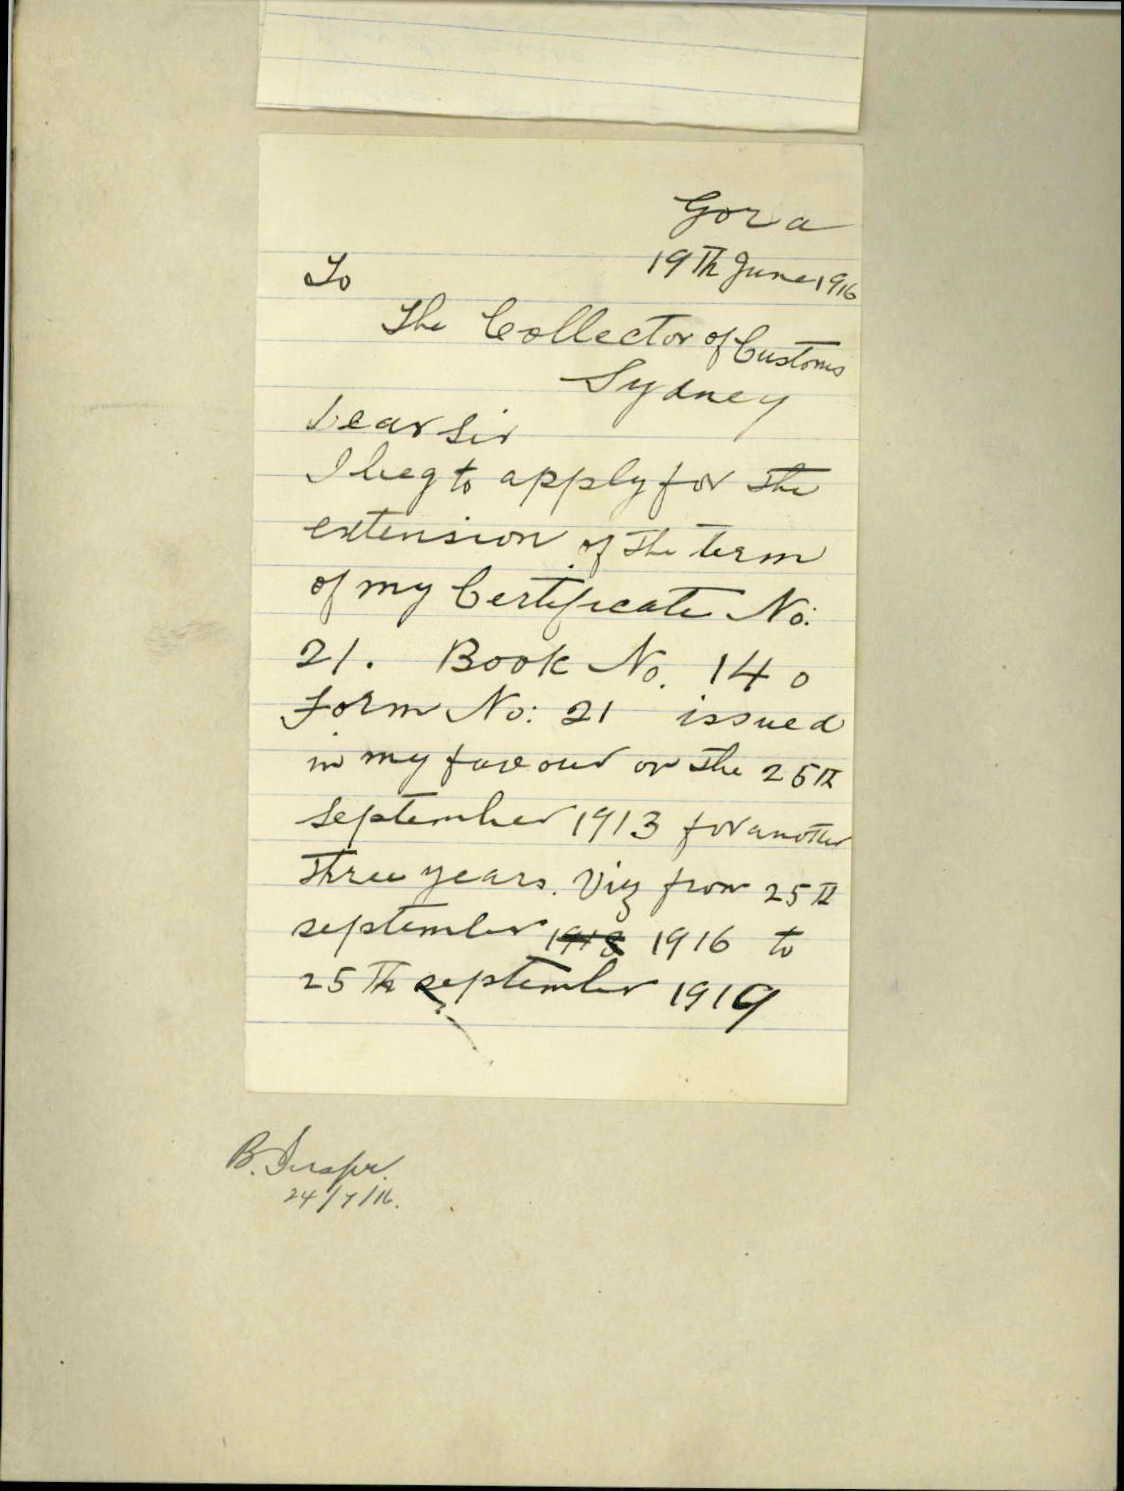 Gora
19Th June 1916
To
The Collector of Customs
Sydney
Dear Sir
I beg to apply for the
extension of the term
of my Certificate No:
21. Book No. 140
Form No: 21 issued
in my favour on the 25th
September 1913 for another
three years. Viz from 25th
september 1918 1916 to
25Th september 1919
B.
24/7/16.